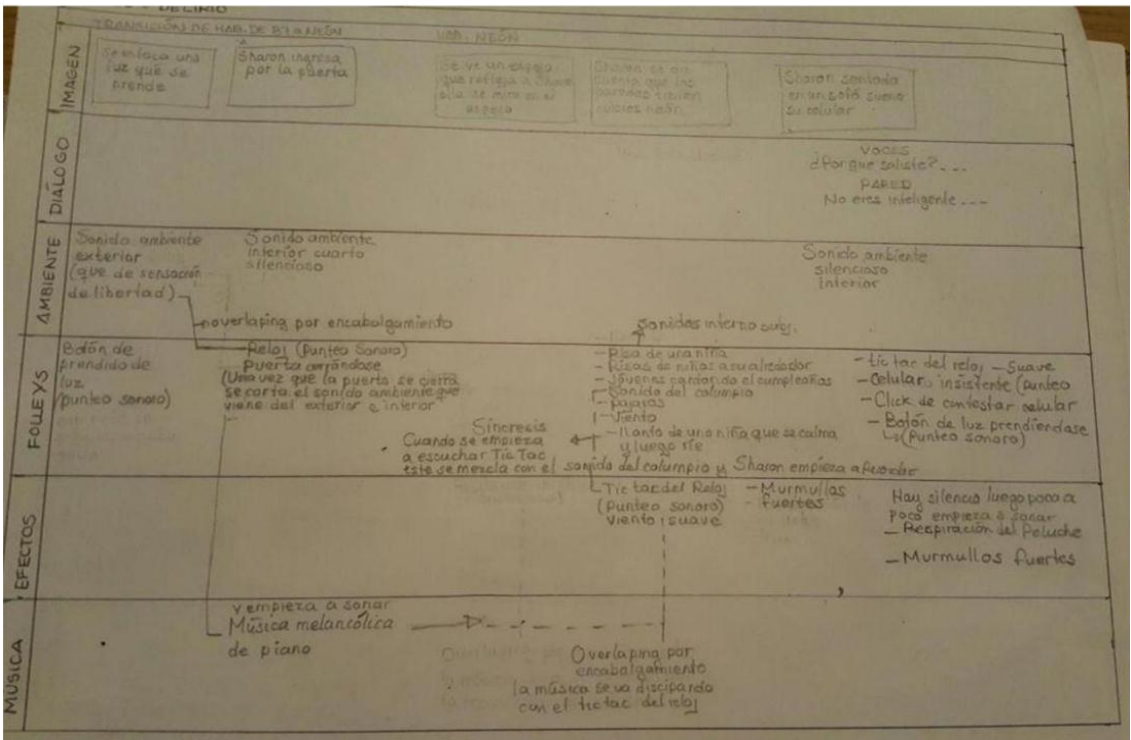 DELIRIO
TRANSICIÓN DE HAB. DE B7 a NEÓN
HAB. NEÓN
IMAGEN
Se enfoca una
luz que se
prende
Sharon ingresa
por la puerta
Se ve un espejo
que refleja a
ella se mira en el
espejo
Sharon se da
cuenta que las
paredes tienen
neón
Sharon sentada
en un sofá suena
su celular
DIÁLOGO
VOCES
¿Por que saliste?---
PARED
No eres inteligente---
AMBIENTE
Sonido ambiente
exterior
(que de sensación
de libertad)
Sonido ambiente
interior cuarto
silencioso
Sonido ambiente
silencioso
Interior
overlaping por encabalgamiento
Sonidos interno subj.
FOLLEYS
Botón de
prendido de
luz
(punteo sonoro)
Reloj (Punteo Sonoro)
Puerta cerrándose
(Una vez que la puerta se cierra
se corta el sonido ambiente que
viene del exterior e interior
Sincresis
Cuando se empieza
a escuchar Tic Tac
este se mezcla con el sonido del columpio y Sharon empieza a
- Risa de una niña
- Risas de niñas a su alrededor
- Jóvenes cantando el cumpleaños
- Sonido del columpio
- pajaros
- Viento
- llanto de una niña que se calma
y luego ríe
- tic tac del reloj - Suave
- Celular insistente (punteo
- Click de contestar celular
- Botón de luz prendiendose
(Punteo sonoro)
EFECTOS
Tic tac del Reloj
(Punteo sonoro)
viento suave
- Murmullos
- fuertes
Hay silencio luego poco a
poco empieza a sonar
- Respiración del Peluche
- Murmullos fuertes
MÚSICA
y empieza a sonar
Música melancólica
de piano
Overlaping por
encabalgamiento
la música se va discipando
con el tic tac del reloj